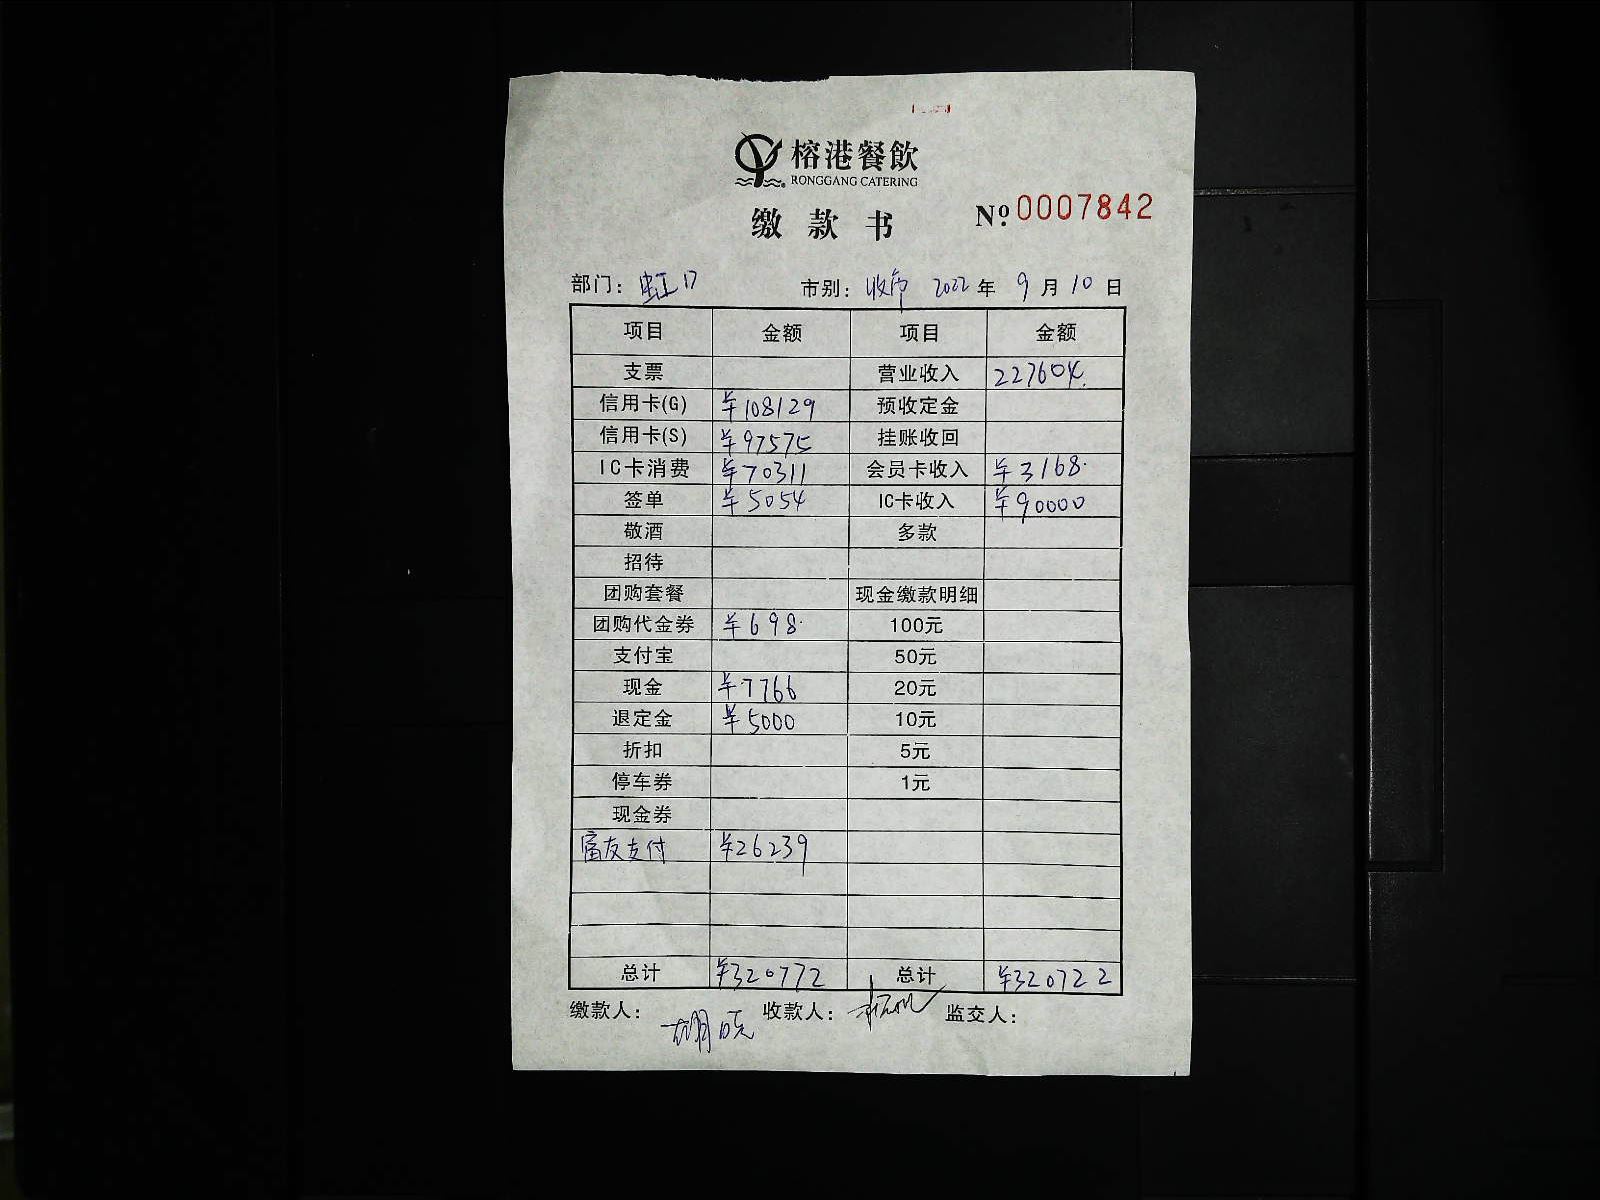 榕港餐飲
RONGGANG CATERING
缴款书 №0007842
部门：虹口 市别：收市 2022年9月10日
项目 金额 项目 金额
支票 营业收入 227604.
信用卡(G) ¥108129 预收定金
信用卡(S) ¥97575 挂账收回
IC卡消费 ¥70311 会员卡收入 ¥3168.
签单 ¥5054 IC卡收入 ¥90000
敬酒 多款
招待
团购套餐 现金缴款明细
团购代金券 ¥698. 100元
支付宝 50元
现金 ¥7766 20元
退定金 ¥5000 10元
折扣 5元
停车券 1元
现金券
富友支付 ¥26239
总计 ¥320772 总计 ¥320722
缴款人： 胡晓 收款人： 监交人：